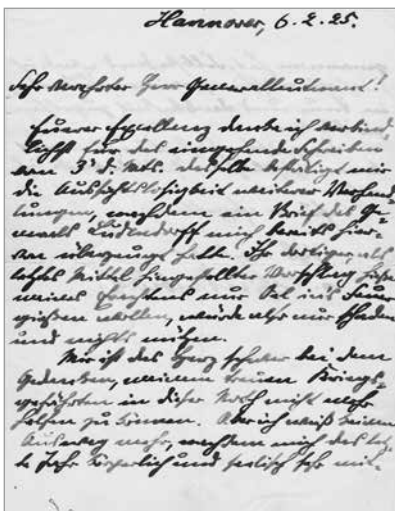 Hannover, 6.2.25.
Sehr verehrter Herr Generalleutnant!
Euerer Exzellenz danke ich verbind-
lichst für das eingehende Schreiben
vom 3' d. Mts. Dasselbe bestätigt mir
die Aussichtslosigkeit weiterer Verhand-
lungen, nachdem ein Brief des Ge-
nerals Ludendorff mich bereits hier-
von überzeugt hatte. Ihr dortiger, als
letztes Mittel hingestellter Vorschlag hieße
meines Erachtens nur Oel ins Feuer
gießen wollen, würde also nur schaden
und nichts nützen.
Mir ist das Herz schwer bei dem
Gedanken, meinem treuen Kriegs-
gefährten in dieser Noth nicht mehr
helfen zu können. Aber ich weiß keinen
Ausweg mehr, nachdem mich das letz-
te Jahr körperlich und seelisch sehr mit-